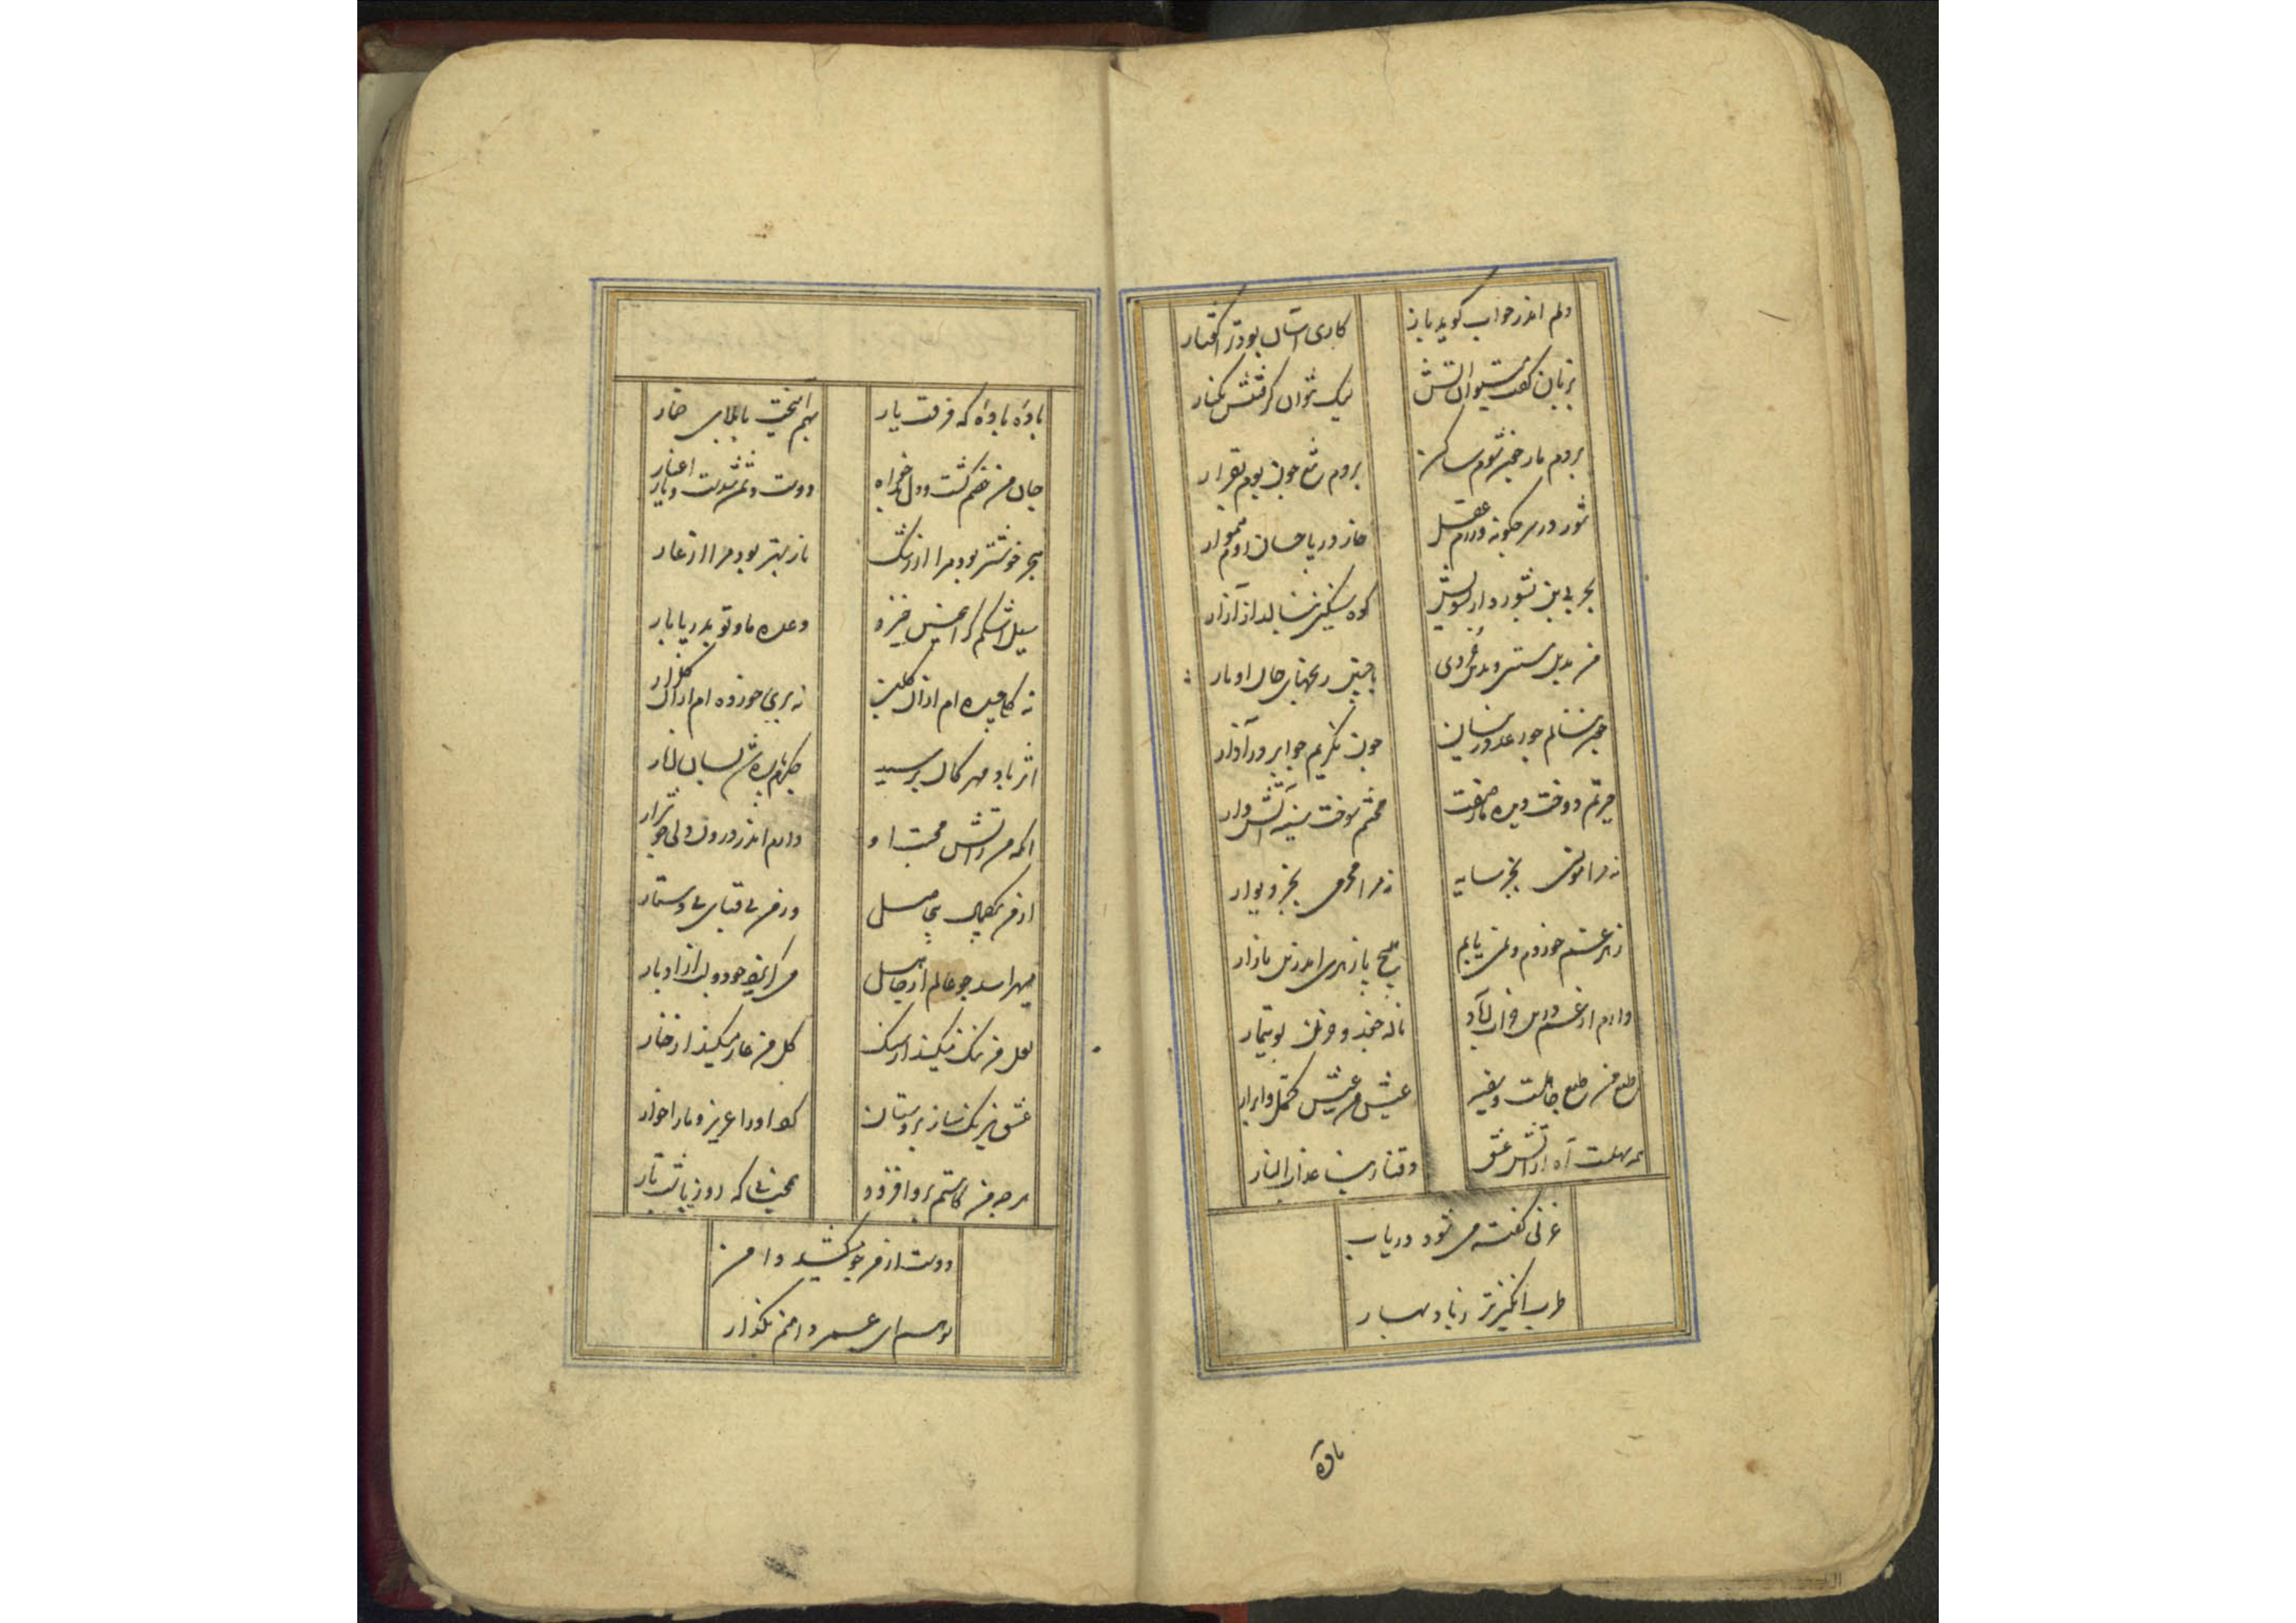 دلم اندر جواب گوید باز کاری آسان بود ترا گفتار
بزبان گفت میتوان آتش لیک نتوان گرفتنش بکنار
بر دم مار چون شوم ساکن بر دم تیغ چون بوم بقرار
شور در سر چگونه ورزم عقل خار در پا چسان روم هموار
بحر بی بن بشورد از شورش کوه سنگین بنالد از آزار
من بدل سستی و بدین خردی با چنین رنجهای جان اوبار
چون ننالم چو رعد در نیسان چون نگریم چو ابر در آذار
حیرتم دوخت دیده نرگس صفت خشمم سوخت سینه آتش وار
نه مرا مونس بجز سایه نه مرا محرمی بجز دیوار
زهر غم خوردم و نمی یابم هیچ پازهری اندرین بازار
دارم از غم درین خراب آباد ناله جغد و حزن بوتیمار
طبع من طبع جاهلست و سفیه عیش من عیش محتمل و ابرار
همه سهلست آه از آتش عشق وقنا ربنا عذاب النار
غزلی گفته می شود دریاب
طرب انگیزتر ز باد بهار
باده
باده باده که فرقت یار بهم آمیخت با بلای خمار
جان من خصم گشت و دل بدخواه دوست دشمن شدست و یار اغیار
هجر خوشتر بود مرا از رشک نار بهتر بود مرا از عار
سیل اشکم گر اینچنین خیزد وعده ما و تو بدریا بار
نه گلی چیده ام از آن گلبن نه بری خورده ام از آن گلزار
اثر باد مهرگان برسید جگرم پاره شد بسان انار
آنکه من در آتش محبت او دارم اندر درون دلی چو شرار
از من یکجهان بی حاصل در من بی قبای بی دستار
میهراسد چو عالم از جاهل می گریزد چو دولت از ادبار
لعل من ننگ میکند از سنگ گل من عار میکند از خار
عشق نیرنگ ساز بر دستان کرد او را عزیز و ما را خوار
هر چه من کاستم بر او افزود محنتی که روز یا شب تار
دوست از من چو میکشد دامن
تو هم ای عمر دامنم بگذار